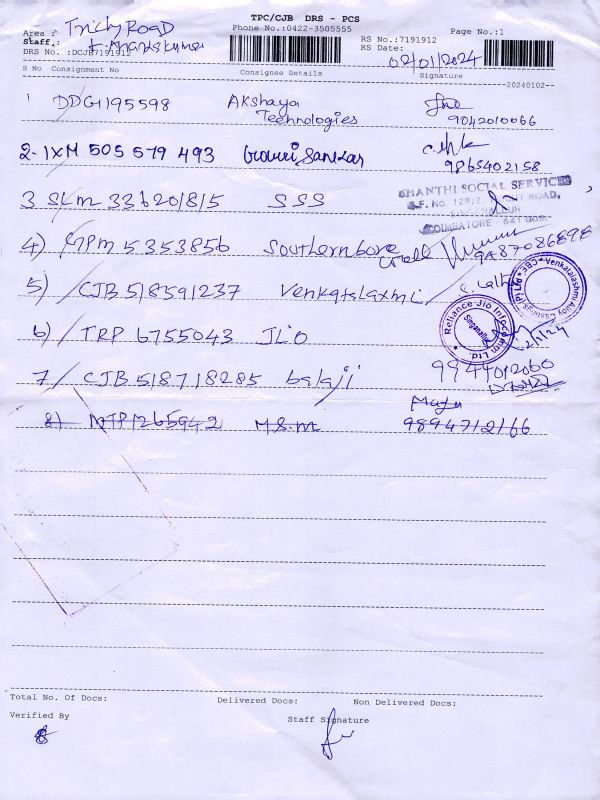 TPC/CJB DRS - PCS
Area : Trichy Road
Phone No.:0422-3505555
Page No.:1
Staff,:
RS No.:7191912
RS Date:
DRS No. :DCJB7191912
02/01/2024
S No Consignment No Consignee Details Signature
20240102
1 DDG1195598 Akshaya Technologies
9042010066
2- 1XM 505 579 493 Gowri Sankar
9865402158
3 SLM 336201815 SSS
SHANTHI SOCIAL SERVICES
COIMBATORE
4) GPM 5353856 Southernbore
5) CJB 518591237 Venkatslaxmi
6) TRP 6755043 JIO
Reliance Jio Infocomm Ltd.
Singanallur
7) CJB 518718285 balaji
9944012060
8) MTP1265942 M.S.M
9894712166
Total No. Of Docs: Delivered Docs: Non Delivered Docs:
Verified By
Staff Signature